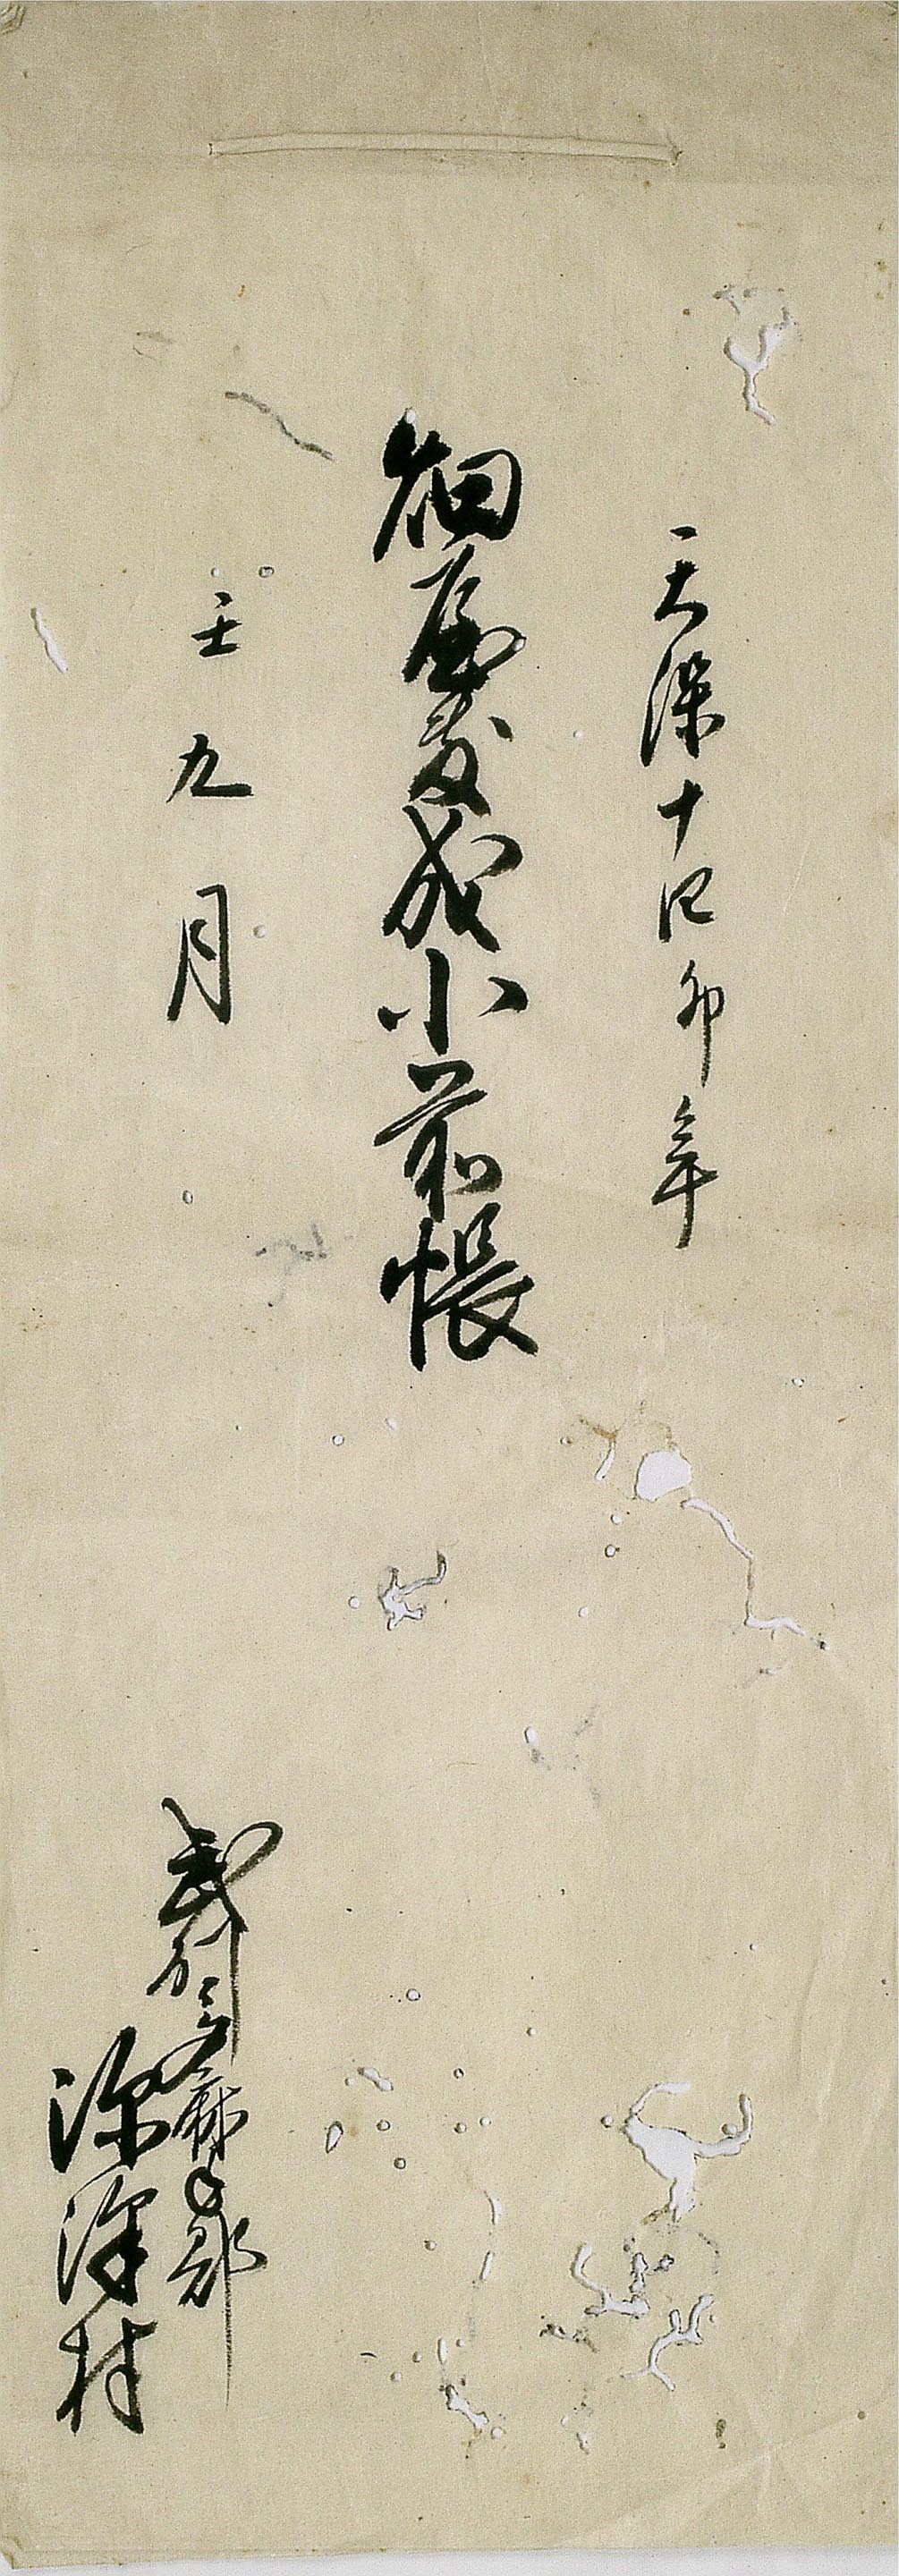 天保十四卯年
畑屋敷成小前帳
壬九月
武州多摩郡
深澤村